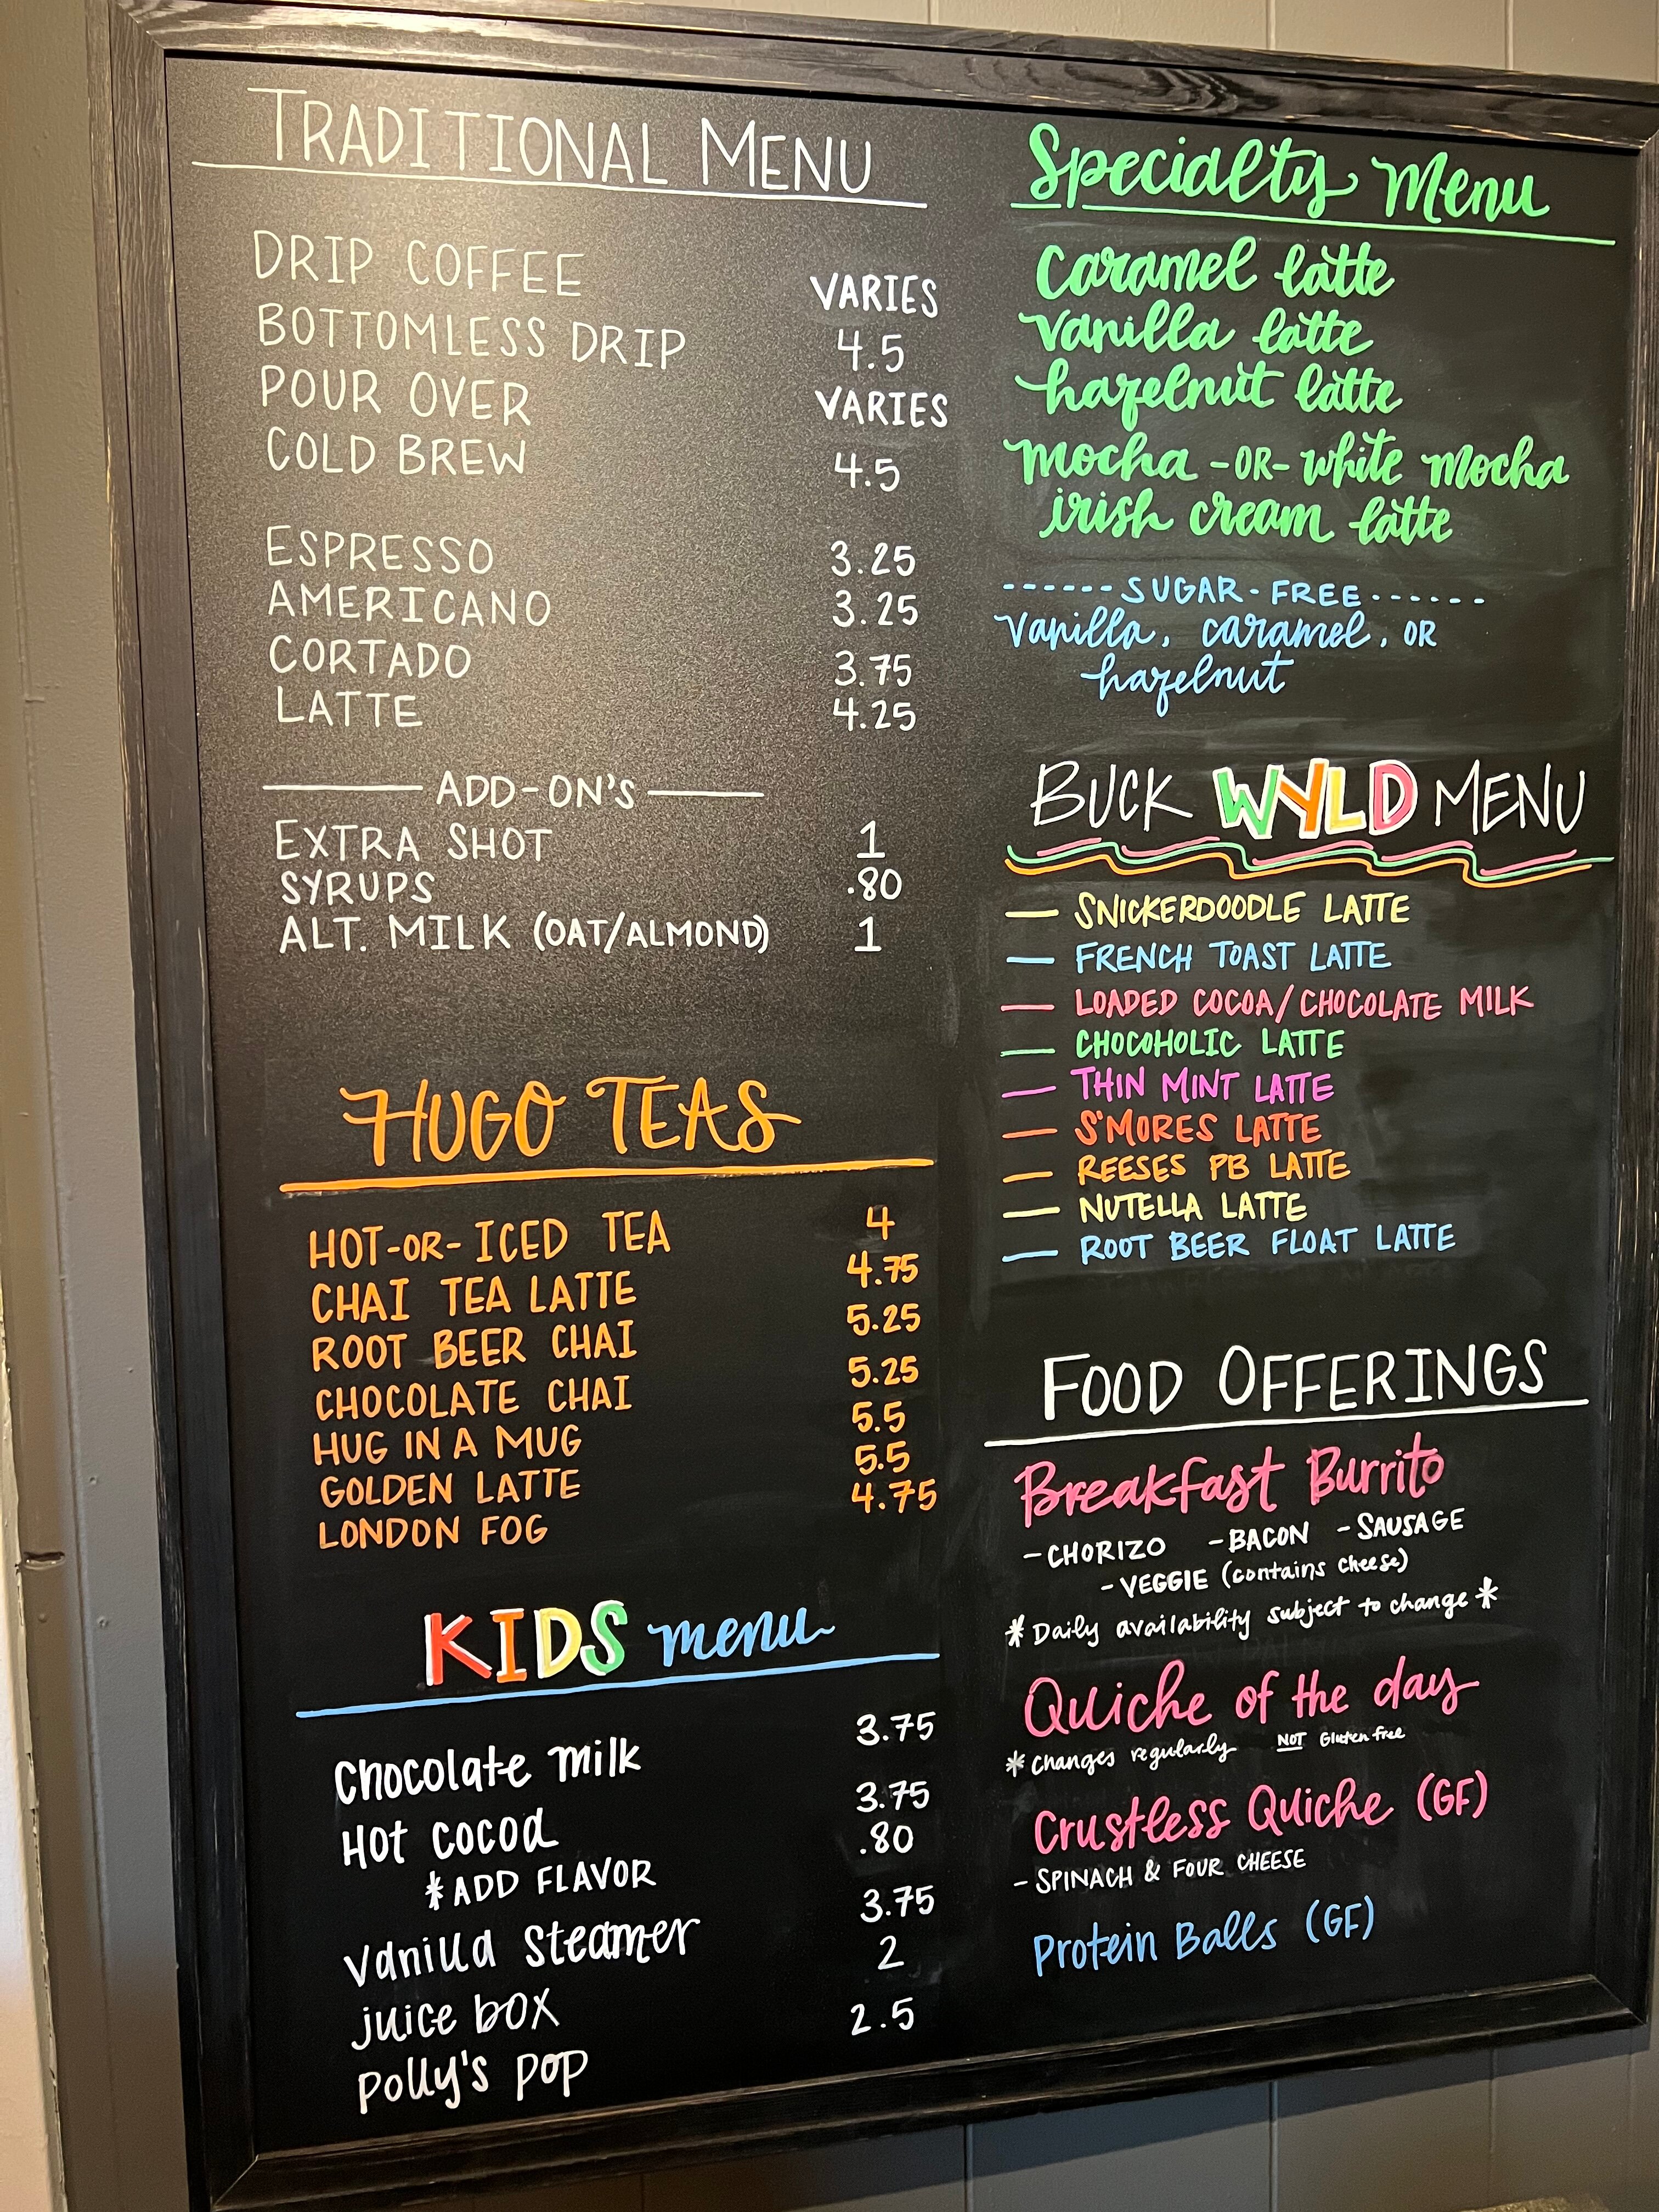 TRADITIONAL MENU
DRIP COFFEE VARIES
BOTTOMLESS DRIP 4.5
POUR OVER VARIES
COLD BREW 4.5
ESPRESSO 3.25
AMERICANO 3.25
CORTADO 3.75
LATTE 4.25
ADD-ON'S
EXTRA SHOT 1
SYRUPS .80
ALT. MILK (OAT/ALMOND) 1
HUGO TEAS
HOT-OR-ICED TEA 4
CHAI TEA LATTE 4.75
ROOT BEER CHAI 5.25
CHOCOLATE CHAI 5.25
HUG IN A MUG 5.5
GOLDEN LATTE 5.5
LONDON FOG 4.75
KIDS menu
Chocolate milk 3.75
Hot cocoa 3.75
*ADD FLAVOR .80
Vanilla Steamer 3.75
juice box 2
Polly's pop 2.5
Specialty Menu
Caramel latte
Vanilla latte
hazelnut latte
mocha -OR- white mocha
irish cream latte
------SUGAR-FREE------
Vanilla, caramel, OR
hazelnut
BUCK WYLD MENU
— SNICKERDOODLE LATTE
— FRENCH TOAST LATTE
— LOADED COCOA/CHOCOLATE MILK
— CHOCOHOLIC LATTE
— THIN MINT LATTE
— S'MORES LATTE
— REESES PB LATTE
— NUTELLA LATTE
— ROOT BEER FLOAT LATTE
FOOD OFFERINGS
Breakfast Burrito
- CHORIZO - BACON - SAUSAGE
- VEGGIE (contains cheese)
* Daily availability subject to change *
Quiche of the day
* changes regularly NOT Gluten free
Crustless Quiche (GF)
- SPINACH & FOUR CHEESE
Protein Balls (GF)